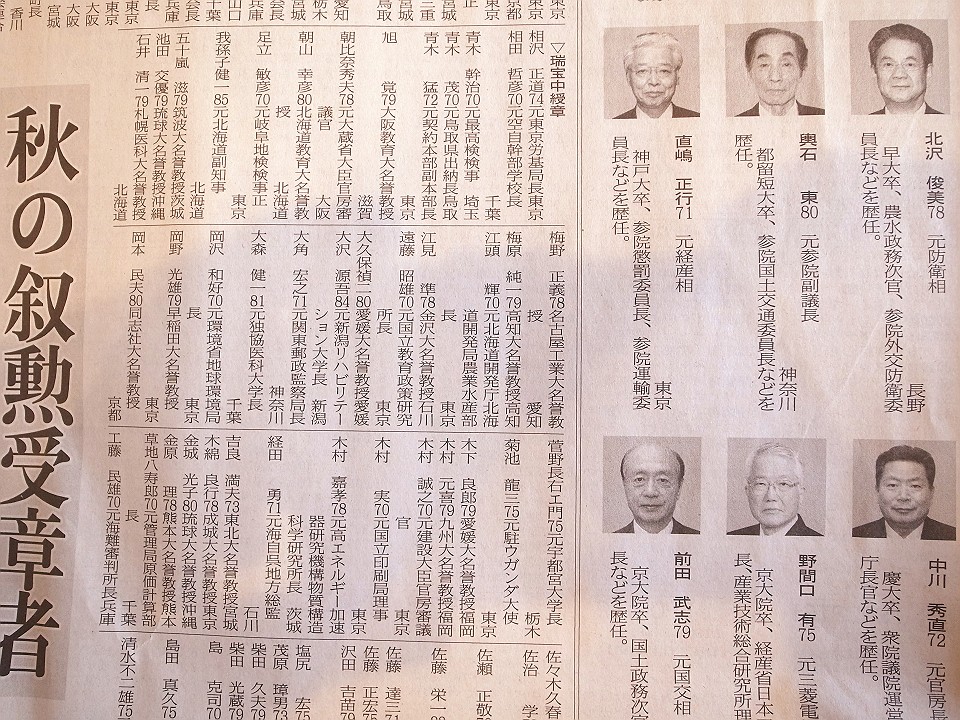 北沢 俊美78 元防衛相
長野
早大卒、農水政務次官、参院外交防衛委
員長などを歴任。
輿石 東80 元参院副議長
神奈川
都留短大卒、参院国土交通委員長などを
歴任。
直嶋 正行71 元経産相
東京
神戸大卒、参院懲罰委員長、参院運輸委
員長などを歴任。
中川 秀直72 元官房長
慶大卒、衆院議院運営
庁長官などを歴任。
野間口 有75 元三菱電
京大院卒、経産省日本
長、産業技術総合研究所理
前田 武志79 元国交相
京大院卒、国土政務次官
長などを歴任。
秋の叙勲受章者
▽瑞宝中綬章
相沢 正道74元東京労基局長東京
相田 哲彦70元空自幹部学校長
千葉
青木 幹治70元最高検検事 埼玉
青木 茂70元鳥取県出納長鳥取
青木 猛72元契約本部副本部長
東京
旭 覚79大阪教育大名誉教授
滋賀
朝比奈秀夫78元大蔵省大臣官房審
議官 大阪
朝山 幸彦80北海道教育大名誉教
授 北海道
足立 敏彦70元岐阜地検検事正
東京
我孫子健一85元北海道副知事
北海道
五十嵐 滋79筑波大名誉教授茨城
池田 交優79琉球大名誉教授沖縄
石井 清一79札幌医科大名誉教授
北海道
梅野 正義78名古屋工業大名誉教
授 愛知
梅原 純一79高知大名誉教授高知
江頭 輝70元北海道開発庁北海
道開発局農業水産部
長 東京
江見 準78金沢大名誉教授石川
遠藤 昭雄70元国立教育政策研究
所長 東京
大久保禎二80愛媛大名誉教授愛媛
大沢 源吾84元新潟リハビリテー
ション大学長 新潟
大角 宏之71元関東郵政監察局長
神奈川
大森 健一81元独協医科大学長
千葉
岡沢 和好70元環境省地球環境局
長 東京
岡野 光雄79早稲田大名誉教授
東京
岡本 民夫80同志社大名誉教授
京都
菅野長右エ門75元宇都宮大学長
栃木
菊池 龍三75元駐ウガンダ大使
東京
木下 良郎79愛媛大名誉教授福岡
木村 元喜79九州大名誉教授福岡
木村 誠之70元建設大臣官房審議
官 東京
木村 実70元国立印刷局理事
東京
木村 嘉孝78元高エネルギー加速
器研究機構物質構造
科学研究所長 茨城
経田 勇71元海自呉地方総監
石川
吉良 満夫73東北大名誉教授宮城
木綿 良行78成城大名誉教授東京
金城 光子80琉球大名誉教授沖縄
金原 理78熊本大名誉教授熊本
草地八寿郎70元管理局原価計算部
長 千葉
工藤 民雄70元海難審判所長兵庫
佐々木久春
佐治
佐瀬 正敬
佐藤 栄一
佐藤 達三
佐藤 正宏75
沢田 吉苗79
塩尻 宏75
茂原 璋男
柴田 久夫79
柴田 光蔵79
島 克司70
島田 真久75
清水不二雄75